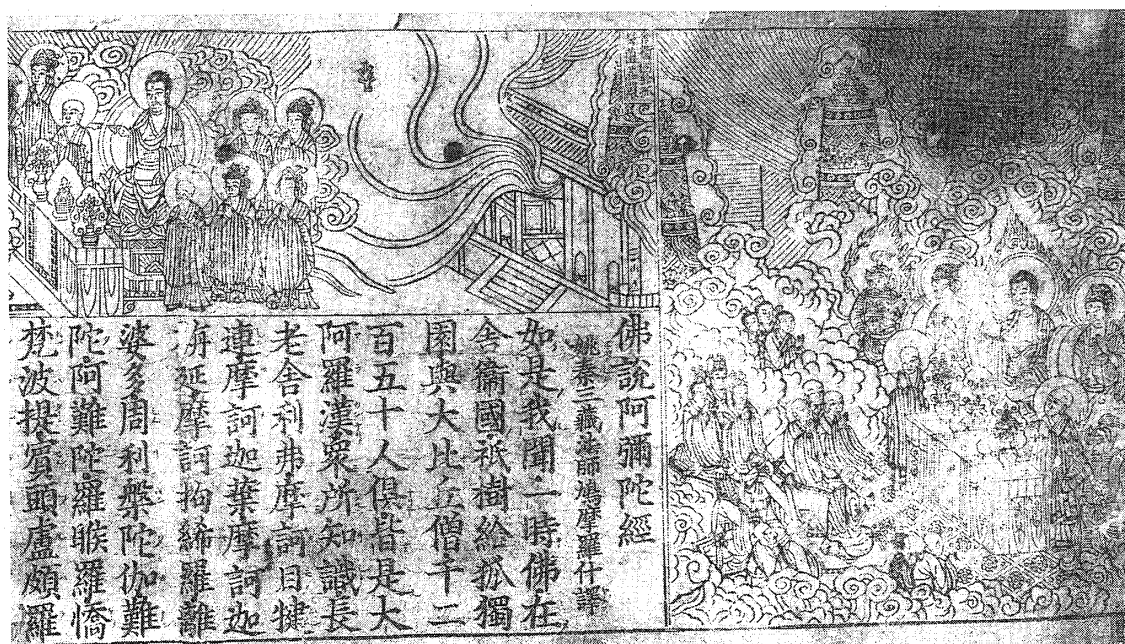 佛說阿彌陀經
姚秦三藏法師鳩摩羅什譯
如是我聞一時佛在
舍衞國祇樹給孤獨
園與大比丘僧千二
百五十人俱皆是大
阿羅漢衆所知識長
老舍利弗摩訶目犍
連摩訶迦葉摩訶迦
旃延摩訶拘絺羅離
婆多周利槃陀伽難
陀阿難陀羅睺羅憍
梵波提賓頭盧頗羅